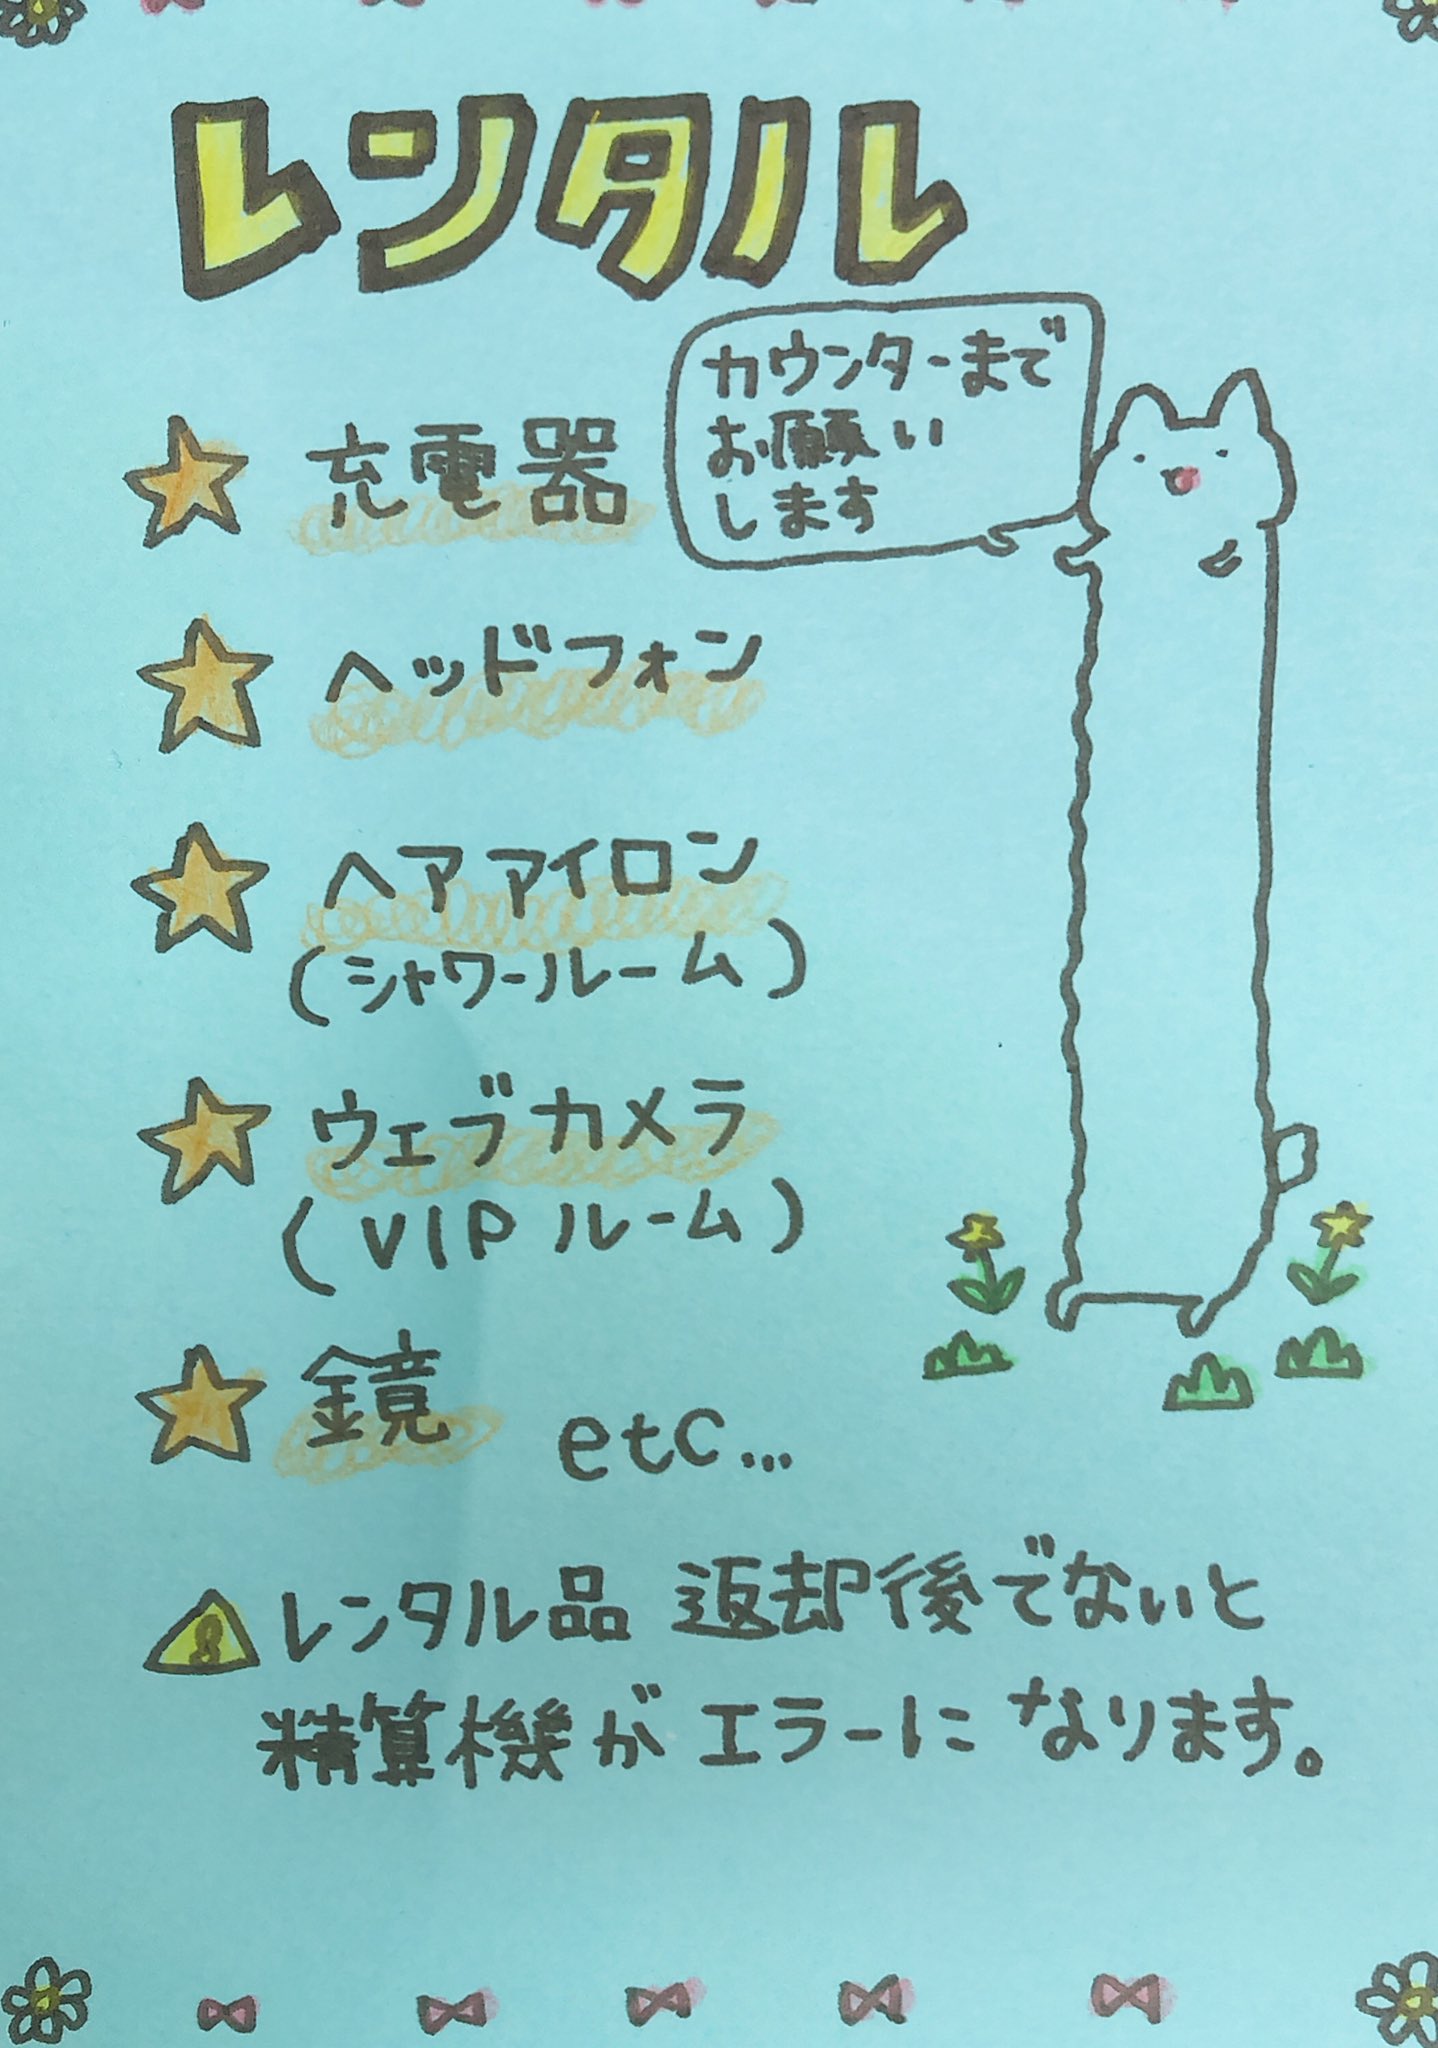 レンタル
カウンターまで
お願い
します
充電器
ヘッドフォン
ヘアアイロン
(シャワールーム)
ウェブカメラ
(VIPルーム)
鏡 etc...
レンタル品 返却後でないと
精算機がエラーになります。